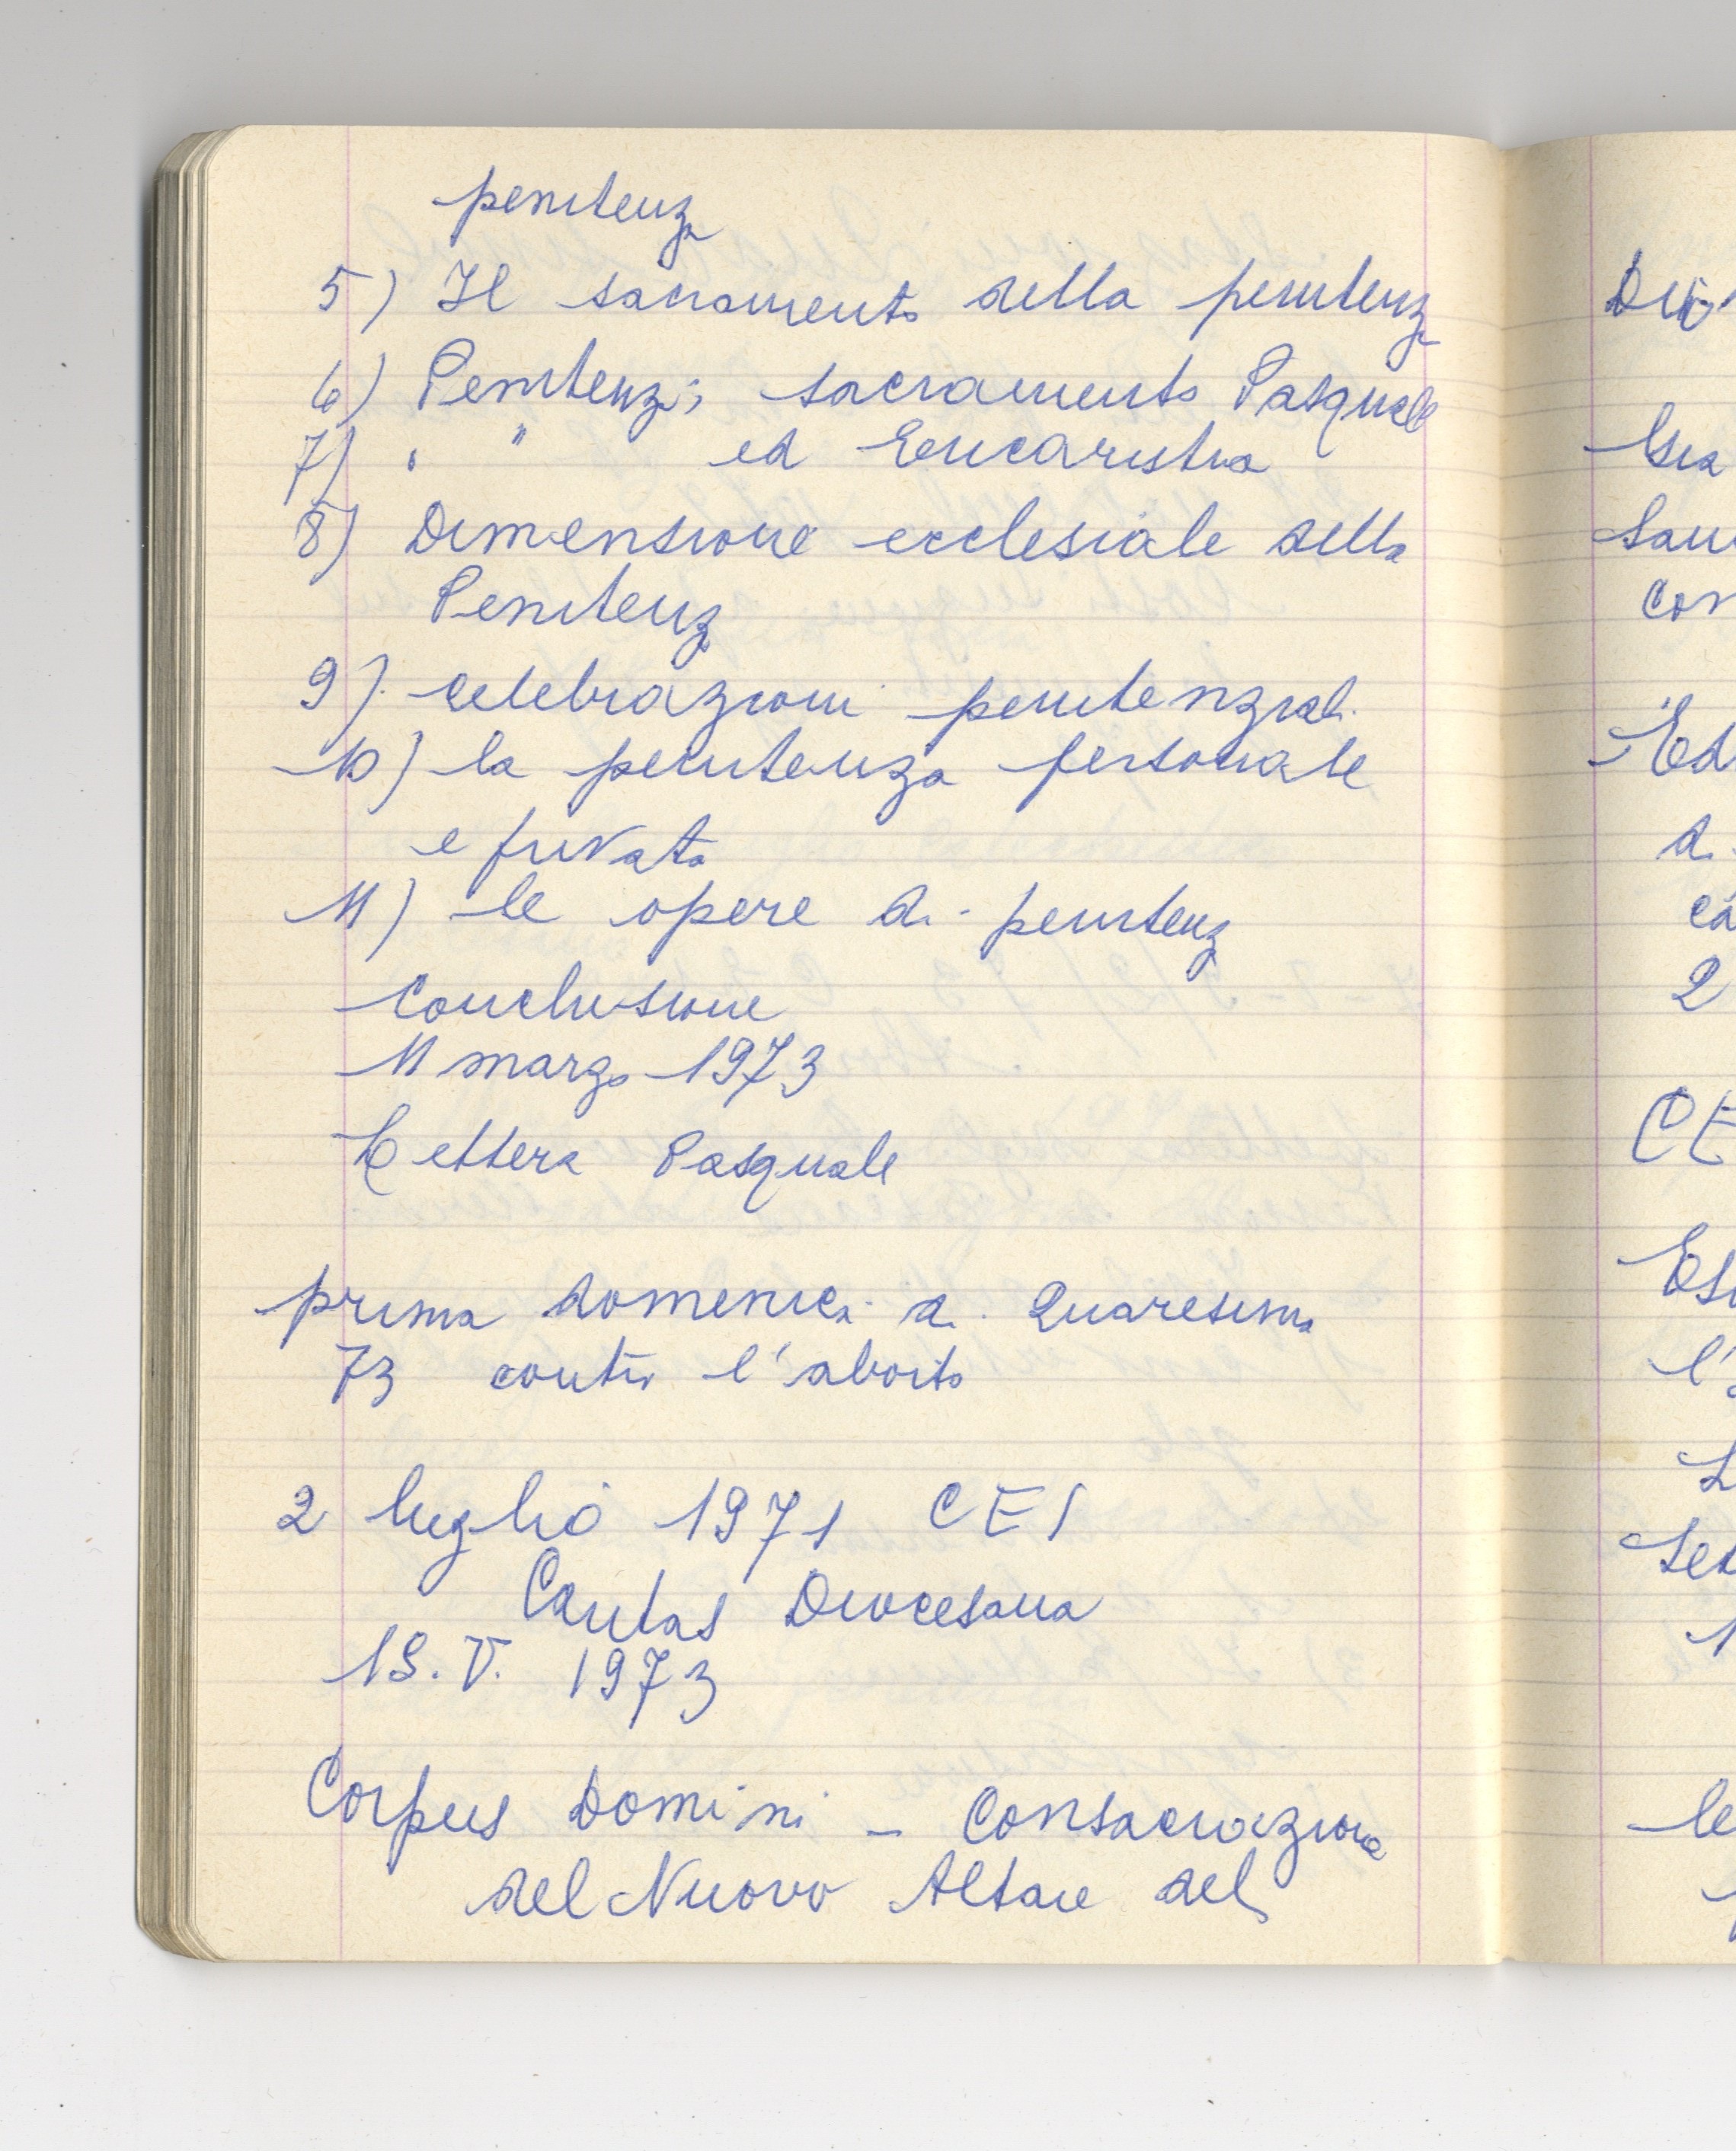 penitenza
5) Il sacramento della penitenza
6) Penitenza; sacramento Pasquale
7) " " ed Eucaristia
8) Dimensione ecclesiale della
Penitenza
9) celebrazioni penitenziali
10) la penitenza personale
e privata
11) le opere di penitenza
Conclusione
11 marzo 1973
Lettera Pasquale
prima domenica di Quaresima
73 contro l'aborto
2 luglio 1971 CEI
Caritas Diocesana
V. 1973
Corpus Domini - Consacrazione
del Nuovo Altare del
CE